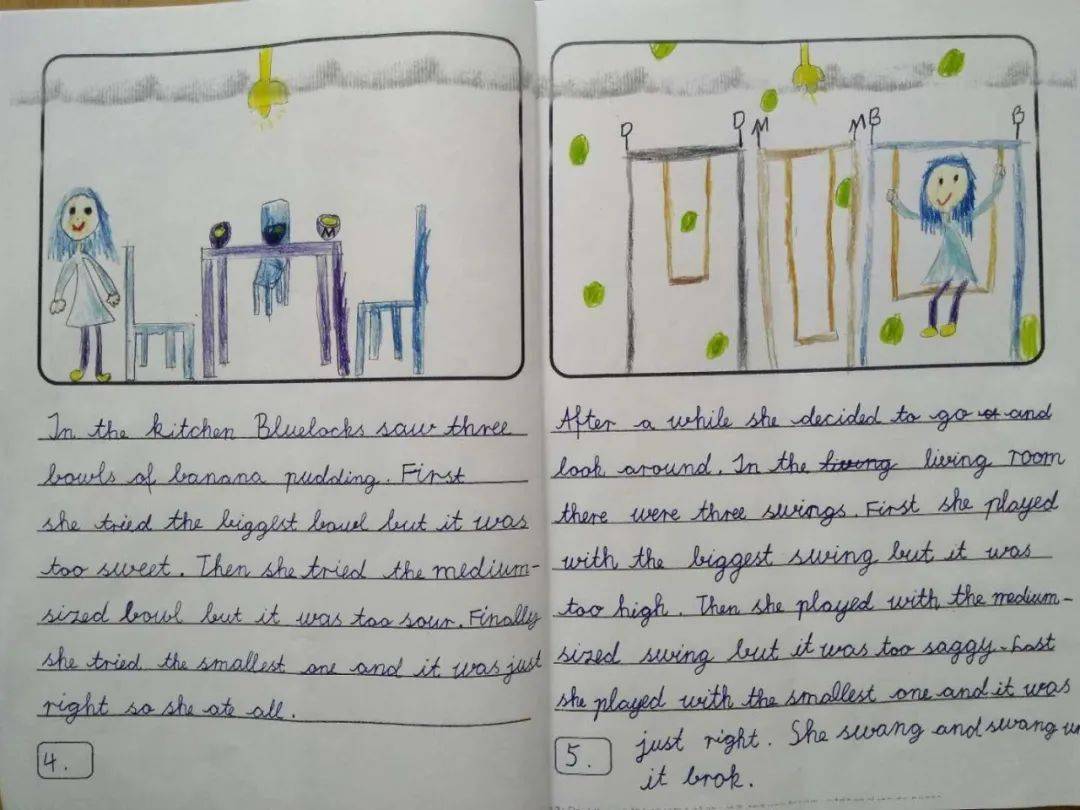 M
In the kitchen Bluelocks saw three
bowls of banana pudding. First
she tried the biggest bowl but it was
too sweet. Then she tried the medium-
sized bowl but it was too sour. Finally
she tried the smallest one and it was just
right so she ate all.
4.
D D M M B B
After a while she decided to go and
look around. In the living living room
there were three swings. First she played
with the biggest swing but it was
too high. Then she played with the medium-
sized swing but it was too saggy. Last
she played with the smallest one and it was
just right. She swang and swang
it brok.
5.